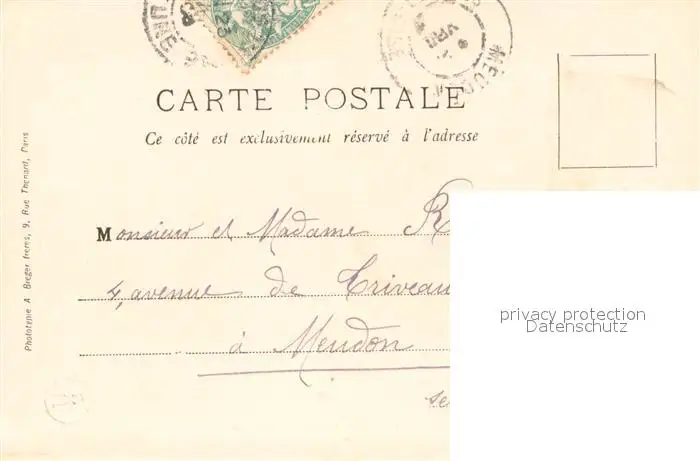 MEUDON
CARTE POSTALE
Ce côté est exclusivement réservé à l'adresse
Phototypie A. Breger frères, 9, Rue Thénard, Paris
Monsieur et Madame R
4, avenue de Triveau
à Meudon
Se
privacy protection
Datenschutz